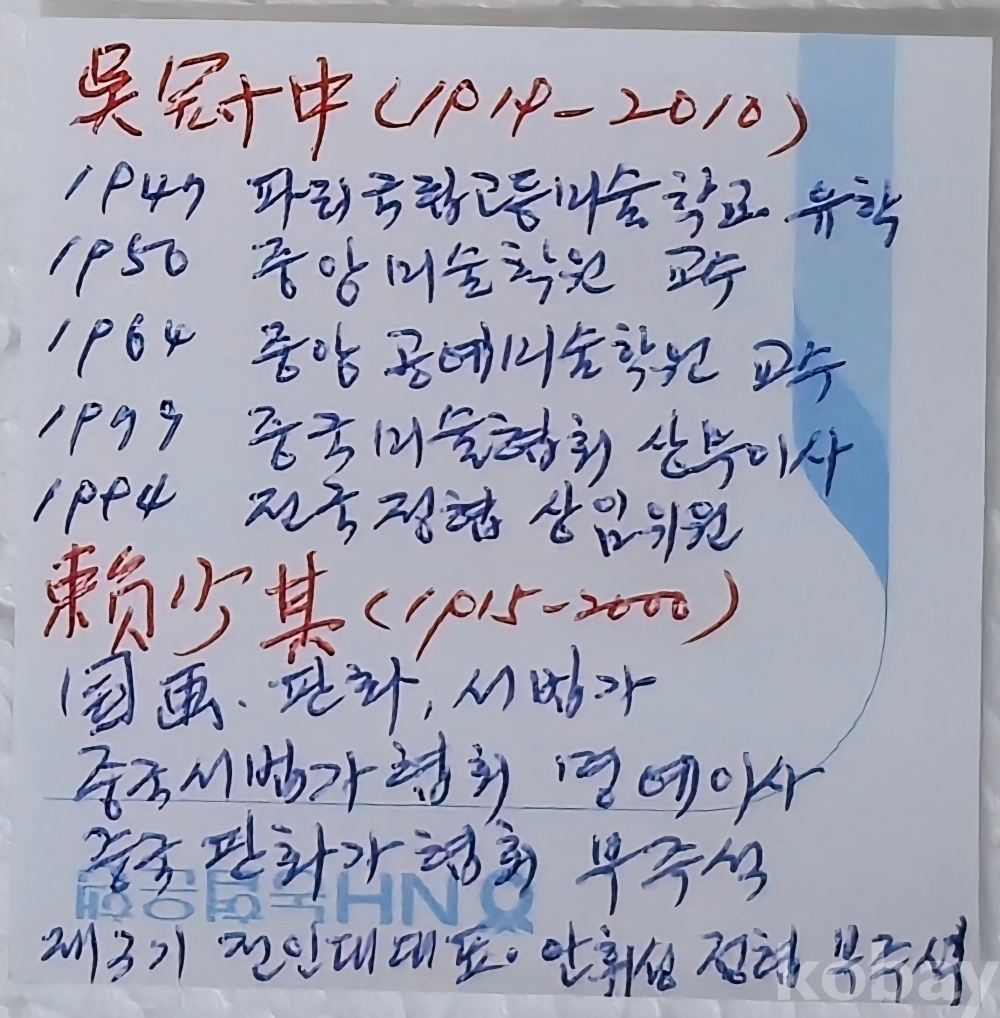 吴冠中 (1919-2010)
1947 파리국립고등미술학교 유학
1950 중앙미술학원 교수
1964 중앙공예미술학원 교수
1979 중국미술협회 상무이사
1994 전국정협 상임위원
賴少其 (1915-2000)
国画. 판화, 서법가
중국서법가협회 명예이사
중국판화가협회 부주석
제3기 전인대대표. 안휘성 정협 부주석
kobay